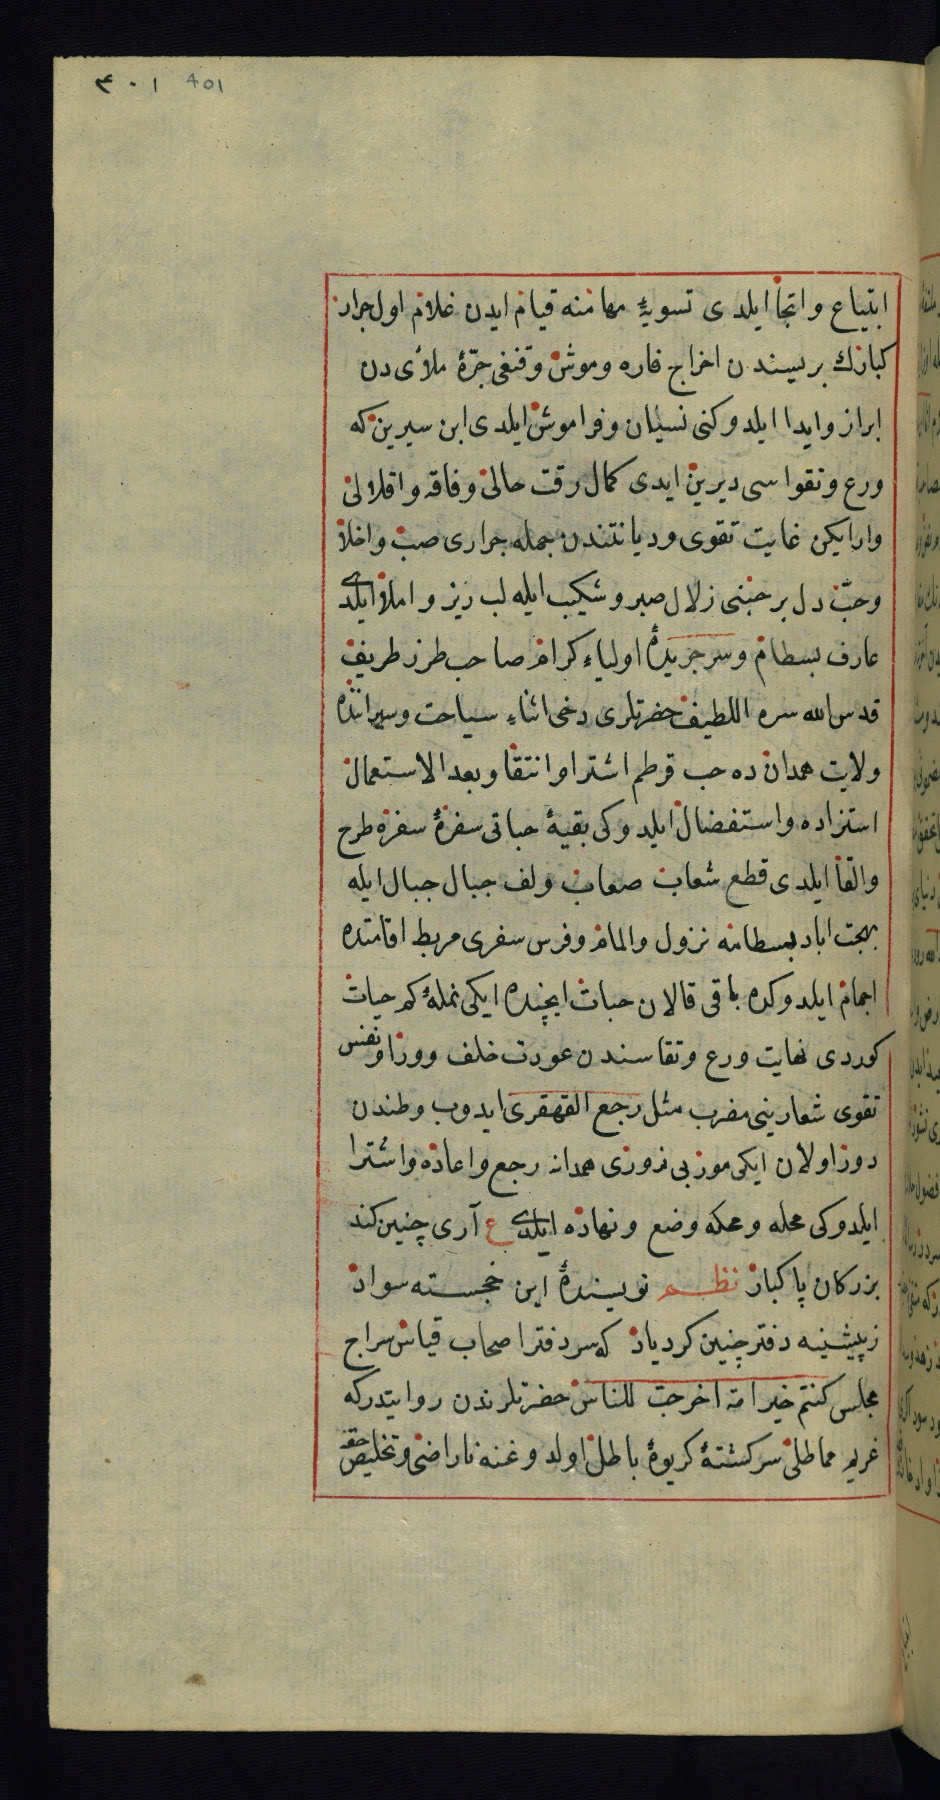 ٤٠١ 401
ابتیاع واتجا ایلدی تسویۀ مهامنه قیام ایدن غلام اول جرار
کبارك بریسندن اخراج فاره وموش وقنغی جرّۀ ملأی دن
ابراز وابدا ایلدوکنی نسیان وفراموش ایلدی ابن سیرین که
ورع وتقواسی دیرین ایدی کمال رقت حالی وفاقه واقلالی
وار ایکن غایت تقوی ودیانتندن جمله جراری صب واخلا
وحبّ دل بر حبنی زلال صبر وشکیب ایله لب ریز واملا ایلدی
عارف بسطام وسر جریدۀ اولیاء کرام صاحب طرز طریف
قدس الله سره اللطیف حضرتلری دخی اثناء سیاحت وسیرانده
ولایت همدان ده حب قرطم اشترا وانتقا وبعد الاستعمال
استزاده واستفضال ایلدوکی بقیۀ حباتی سفرۀ سفره طرح
والقا ایلدی قطع شعاب صعاب ولف جبال جبال ایله
بهجت اباد بسطامه نزول والمام وفرس سفری مربط اقامتده
اجمام ایلدوکده باقی قالان حبات ایچنده ایکی نملۀ کم حیات
کوردی نهایت ورع وتقاسندن عودت خلف ووزا ونفس
تقوی شعارینی مضرب مثل رجع القهقری ایدوب وطندن
دور اولان ایکی موز بی زوری همدانه رجع واعاده واشترا
ایلدوکی محله ومحکه وضع ونهاده ایلدی ع آری چنین کند
بزرکان پاکباز نظم نویسندۀ این خجسته سواد
زپیشینه دفتر چنین کرد یاد که سر دفتر اصحاب قیاس سراج
مجلس کنتم خیر امة اخرجت للناس حضرتلرندن روایتدرکه
غریم مماطلی سرکشتۀ کریوۀ باطل اولد وغنه ناراضی وتخلیص حقه